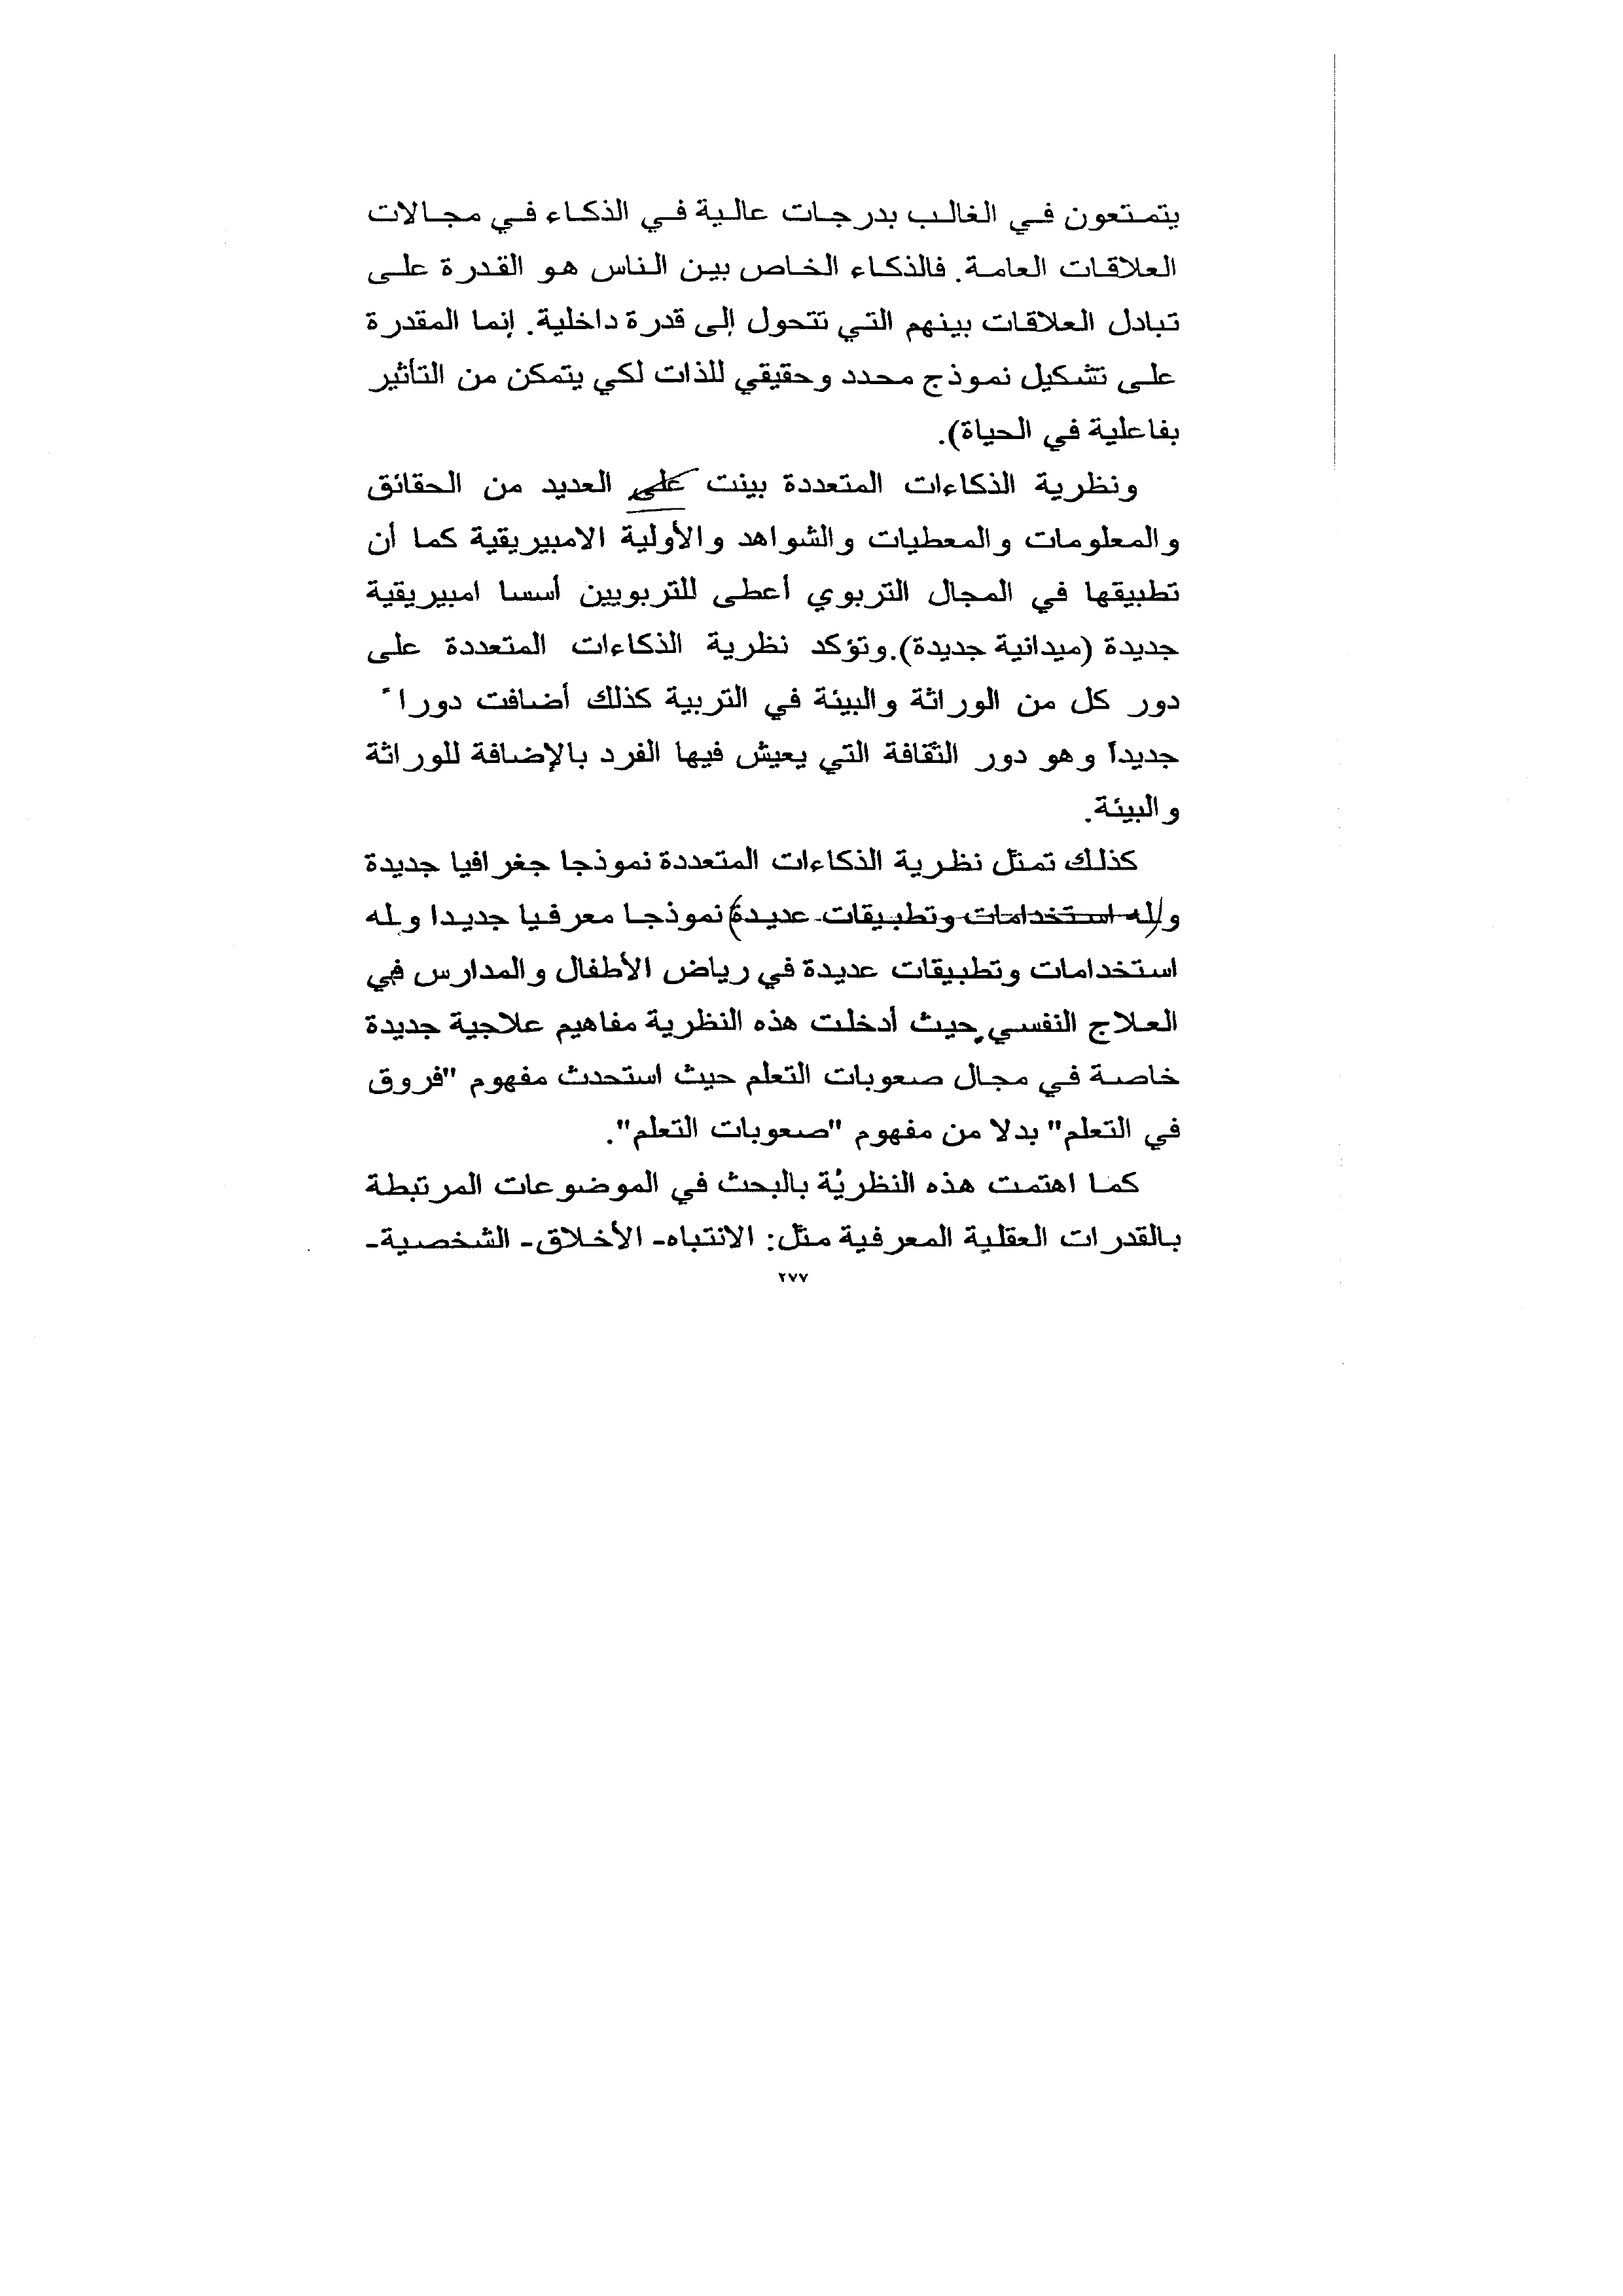 يتمتعون في الغالب بدرجات عالية في الذكاء في مجالات
العلاقات العامة. فالذكاء الخاص بين الناس هو القدرة على
تبادل العلاقات بينهم التي تتحول إلى قدرة داخلية. إنما المقدرة
على تشكيل نموذج محدد وحقيقي للذات لكي يتمكن من التأثير
بفاعلية في الحياة).
ونظرية الذكاءات المتعددة بينت على العديد من الحقائق
والمعلومات والمعطيات والشواهد والأولية الامبيريقية كما أن
تطبيقها في المجال التربوي أعطى للتربويين أسسا امبيريقية
جديدة (ميدانية جديدة). وتؤكد نظرية الذكاءات المتعددة على
دور كل من الوراثة والبيئة في التربية كذلك أضافت دوراً
جديداً وهو دور الثقافة التي يعيش فيها الفرد بالإضافة للوراثة
والبيئة.
كذلك تمثل نظرية الذكاءات المتعددة نموذجا جغرافيا جديدة
و(له استخدامات وتطبيقات عديدة) نموذجا معرفيا جديدا وله
استخدامات وتطبيقات عديدة في رياض الأطفال والمدارس في
العلاج النفسي حيث أدخلت هذه النظرية مفاهيم علاجية جديدة
خاصة في مجال صعوبات التعلم حيث استحدث مفهوم "فروق
في التعلم" بدلا من مفهوم "صعوبات التعلم".
كما اهتمت هذه النظرية بالبحث في الموضوعات المرتبطة
بالقدرات العقلية المعرفية مثل: الانتباه- الأخلاق- الشخصية-
٢٧٧